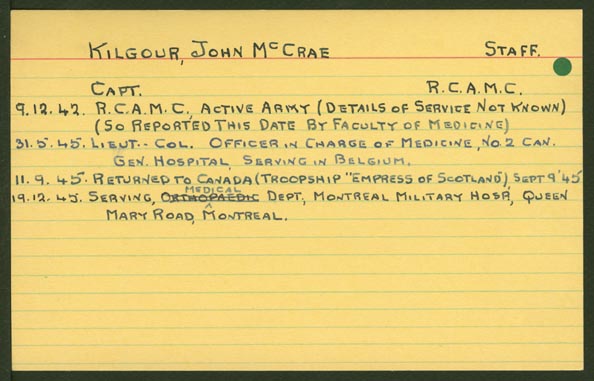 KILGOUR, JOHN McCRAE STAFF.
CAPT. R.C.A.M.C.
9.12.42. R.C.A.M.C., ACTIVE ARMY (DETAILS OF SERVICE NOT KNOWN)
(SO REPORTED THIS DATE BY FACULTY OF MEDICINE)
31.5.45. LIEUT.-COL. OFFICER IN CHARGE OF MEDICINE, NO.2 CAN.
GEN. HOSPITAL, SERVING IN BELGIUM.
11.9.45. RETURNED TO CANADA (TROOPSHIP "EMPRESS OF SCOTLAND"), SEPT 9 '45
MEDICAL
19.12.45. SERVING, ORTHOPAEDIC DEPT, MONTREAL MILITARY HOSP., QUEEN
MARY ROAD, MONTREAL.